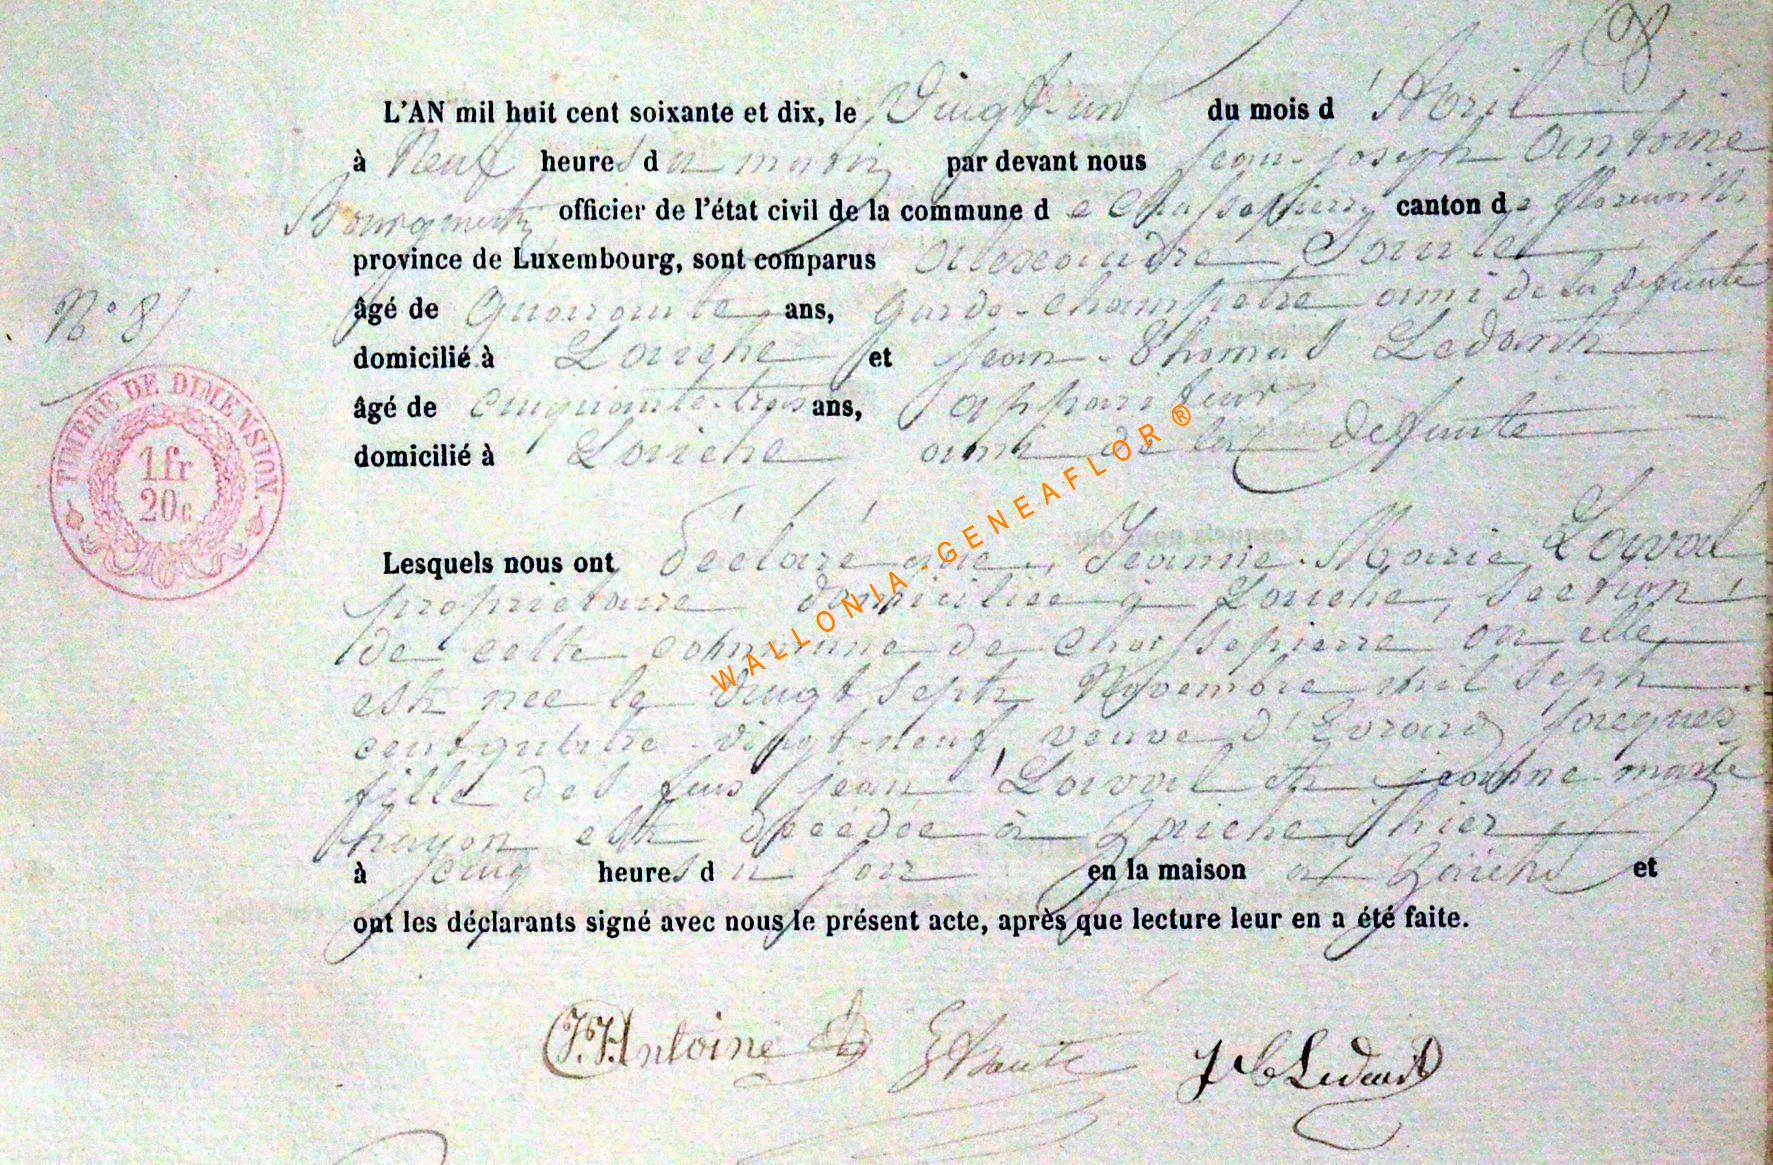 L'AN mil huit cent soixante et dix, le Vingt-un du mois d'Avril
à Neuf heures du matin par devant nous jean-joseph Antoine
Bourgmestre officier de l'état civil de la commune de Chassepierre canton de florenville
province de Luxembourg, sont comparus Alexandre
âgé de Quarante ans, Garde-champetre ami de la defunte
domicilié à Laiche et jean-Thomas Ledant
N° 8)
âgé de cinquante-trois ans, appariteur
domicilié à Laiche ami de la defunte
TIMBRE DE DIMENSION.
1fr
20c
Lesquels nous ont déclaré que Jeanne-Marie Laval
propriétaire domiciliée à Laiche, section
de cette commune de Chassepierre où elle
est née le Vingt sept Novembre mil sept
cent quatre-vingt-neuf, veuve d'Evrard jacques
fille des feus jean Laval et jeanne-marie
hayon est décédée à Laiche hier
à cinq heures du soir en la maison à Laiche et
ont les déclarants signé avec nous le présent acte, après que lecture leur en a été faite.
J.J.Antoine Ledant
WALLONIA-GENEAFLOR®